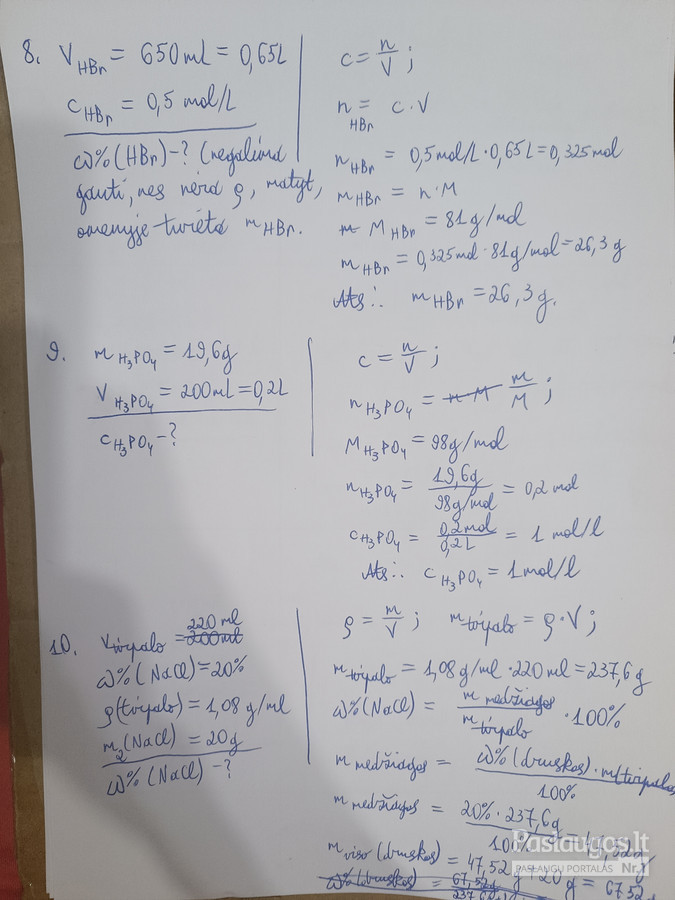 8. V HBr = 650 ml = 0,65L
c HBr = 0,5 mol/L
ω%(HBr) - ? (negalima
gauti, nes nėra ρ, matyt,
omenyje turėta m HBr.
c = n/V ;
n HBr = c · V
n HBr = 0,5 mol/L · 0,65 L = 0,325 mol
m HBr = n · M
M HBr = 81 g/mol
m HBr = 0,325 mol · 81 g/mol = 26,3 g
Ats.: m HBr = 26,3 g.
9. m H3PO4 = 19,6g
V H3PO4 = 200 ml = 0,2L
c H3PO4 - ?
c = n/V ;
n H3PO4 = n · M m/M ;
M H3PO4 = 98 g/mol
n H3PO4 = 19,6g / 98 g/mol = 0,2 mol
c H3PO4 = 0,2 mol / 0,2 L = 1 mol/l
Ats.: c H3PO4 = 1 mol/l
10. V tirpalo = 200 ml 220 ml
ω% (NaCl) = 20%
ρ(tirpalo) = 1,08 g/ml
m2 (NaCl) = 20 g
ω% (NaCl) - ?
ρ = m/V ; m tirpalo = ρ · V ;
m tirpalo = 1,08 g/ml · 220 ml = 237,6 g
ω% (NaCl) = m medžiagos / m tirpalo · 100%
m medžiagos = ω% (druskos) · m(tirpalas / 100%
m medžiagos = 20% · 237,6 g / 100% = 47,52 g
m viso (druskos) = 47,52 g + 20 g = 67,52
ω% (druskos) = 67,52 g / 237,6 g
Paslaugos.lt
PASLAUGŲ PORTALAS Nr.1